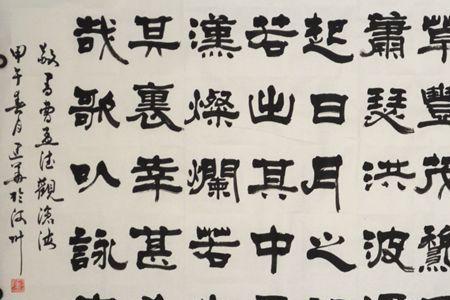 草豐茂
蕭瑟洪波
起日月之
若出其中
漢燦爛若
其裏幸甚
哉歌以詠
敬書曹孟德觀滄海
甲午春月於汝州